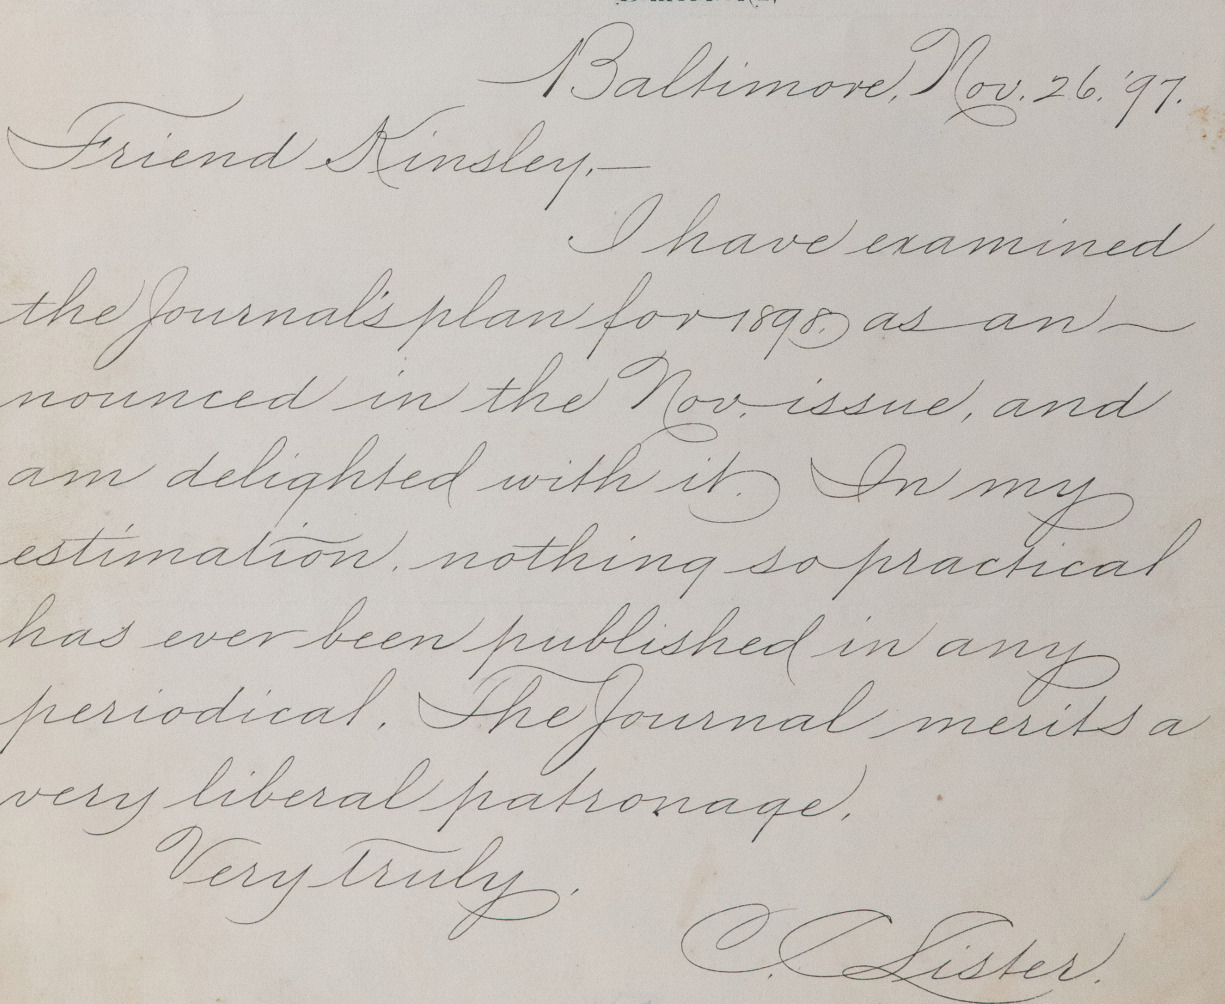 Baltimore, Nov. 26. '97.
Friend Kinsley,—
I have examined
the Journal's plan for 1898, as an-
nounced in the Nov. issue, and
am delighted with it. In my
estimation, nothing so practical
has ever been published in any
periodical. The Journal merits a
very liberal patronage.
Very truly,
C. C. Lister.